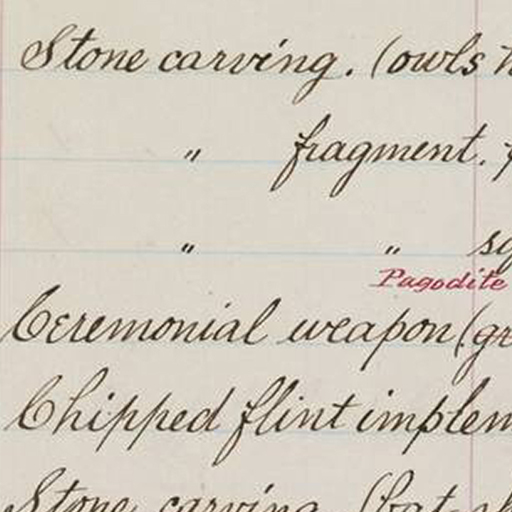 Stone carving. (owls
" fragment.
" "
Pagodite
Ceremonial weapon (gr
Chipped flint implem
Stone carving (bat-sh